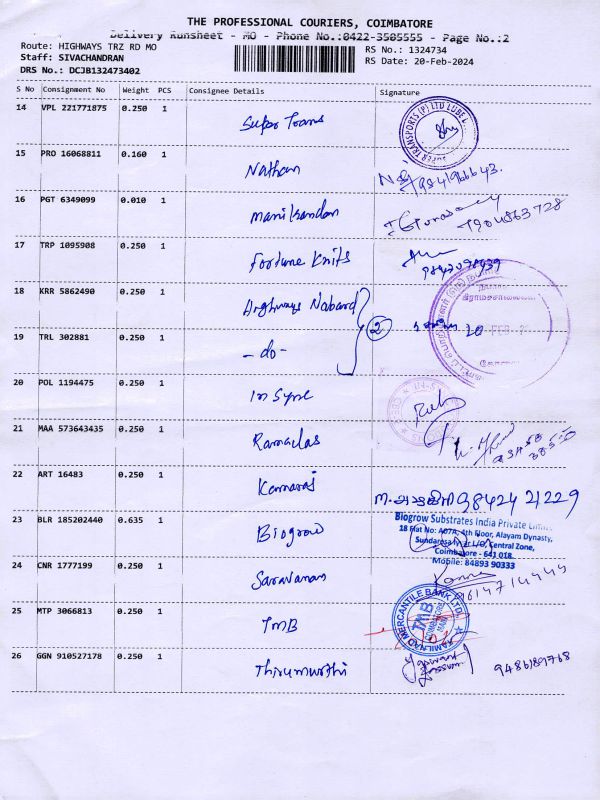 THE PROFESSIONAL COURIERS, COIMBATORE
Delivery Runsheet - MO - Phone No.:0422-3505555 - Page No.:2
Route: HIGHWAYS TRZ RD MO
RS No.: 1324734
Staff: SIVACHANDRAN
RS Date: 20-Feb-2024
DRS No.: DCJB132473402
S No Consignment No Weight PCS Consignee Details Signature
14 VPL 221771875 0.250 1 Super Trans
15 PRO 16068811 0.160 1 Nathan
16 PGT 6349099 0.010 1 Manikandan
17 TRP 1095908 0.250 1 Fortune Knits
18 KRR 5862490 0.250 1 Highways Nabard
2
19 TRL 302881 0.250 1 -do-
20 POL 1194475 0.250 1 In Sync
21 MAA 573643435 0.250 1 Ramadas
22 ART 16483 0.250 1 Kamaraj
98424 21229
23 BLR 185202440 0.635 1 Biogrow
Biogrow Substrates India Private Limited
18 Flat No: A07A, 4th Floor, Alayam Dynasty,
Central Zone,
Coimbatore - 641 018.
Mobile: 84893 90333
24 CNR 1777199 0.250 1 Saravanan
25 MTP 3066813 0.250 1 TMB
TAMILNAD MERCANTILE BANK LTD.
TMB
26 GGN 910527178 0.250 1 Thirumurthi
9486189768